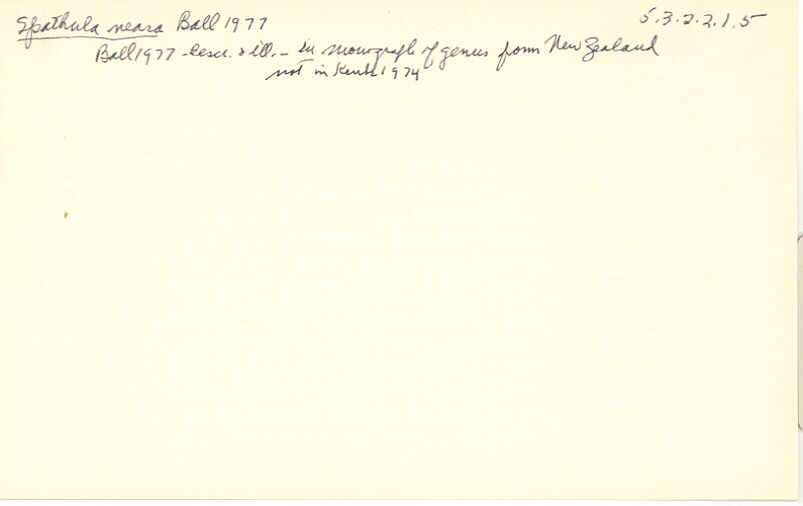 Spathula neara Ball 1977 5.3.2.2.1.5
Ball 1977 - descr. & ill. - in monograph of genus from New Zealand
not in Kenk 1974